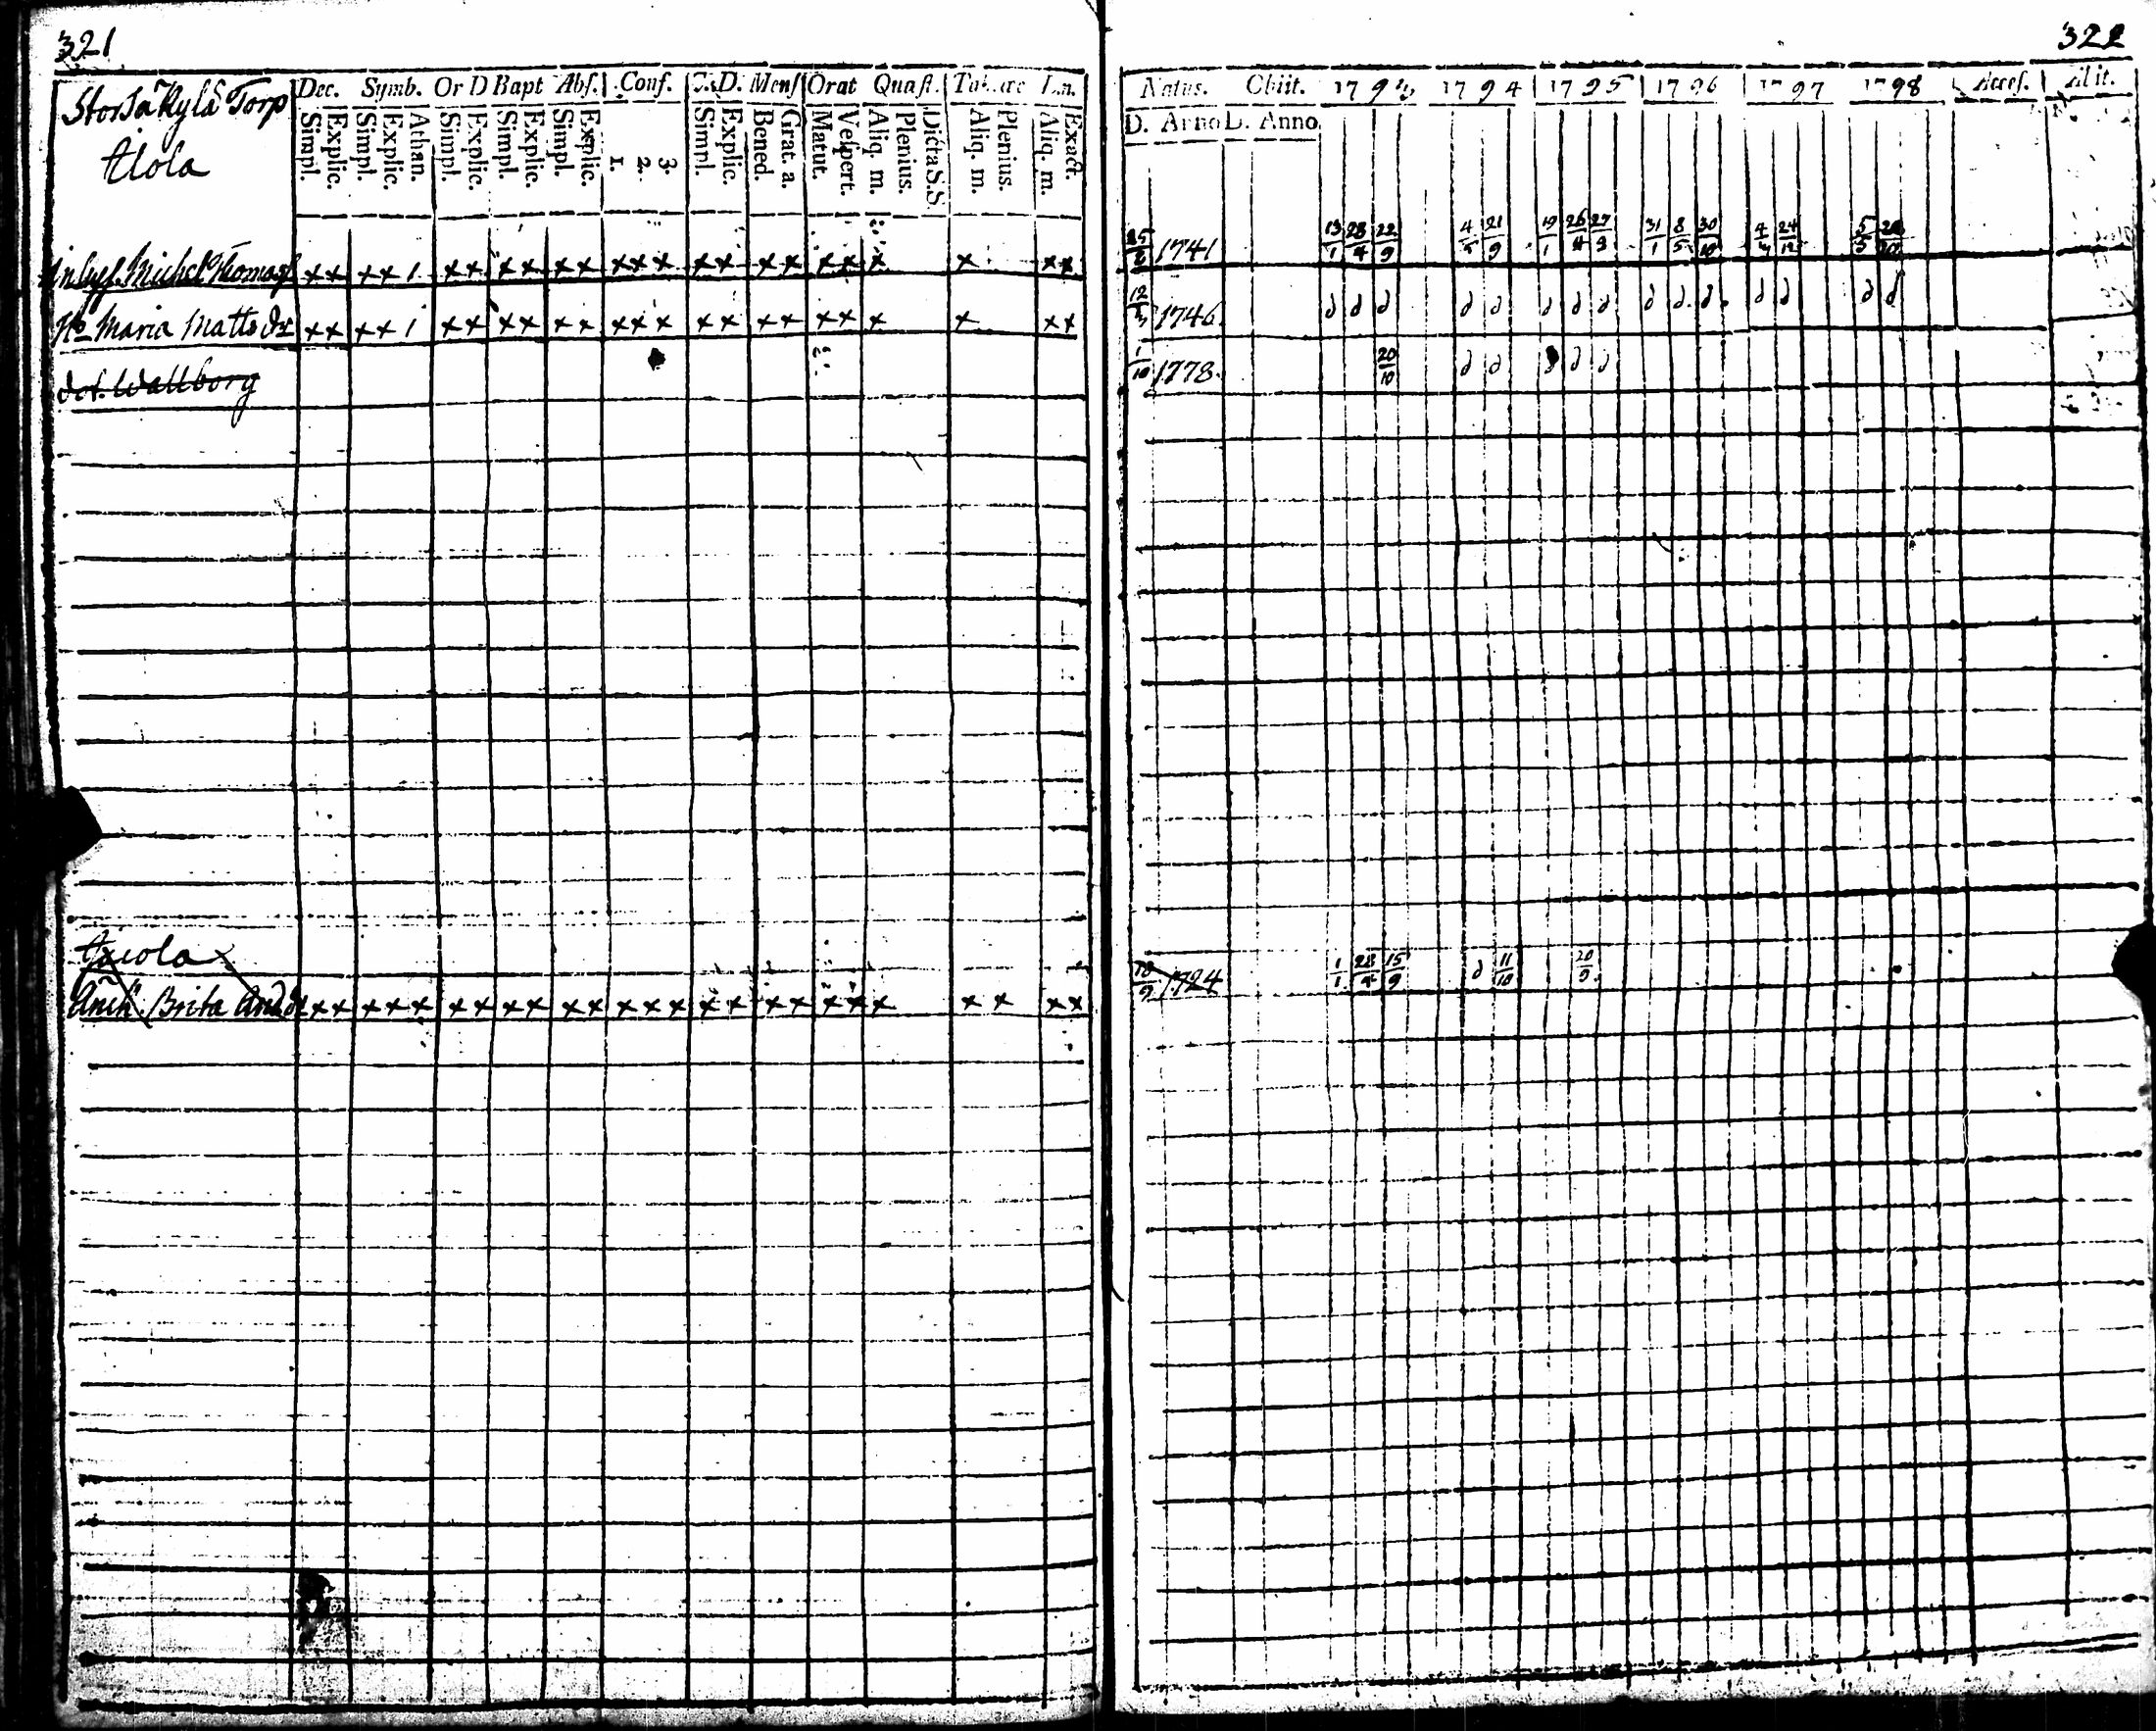 321
Storså Kylä Torp
Alola
Dec. Symb. Or D Bapt Abs. Conf. C.D. Mens Orat Quæst. Tabulæ Lin.
Simpl. Explic. Simpl. Explic. Athan. Simpl. Explic. Simpl. Explic. Simpl. Explic. 1. 2. 3. Simpl. Explic. Bened. Grat. a. Matut. Vespert. Aliq. m. Plenius. Dicta S.S. Aliq. m. Plenius. Aliq. m. Exact.
Michel Thomass ×× ××1 ×× ×× ×× ××× ×× ×× ××× × ××
Ho Maria Matts dr ×× ××1 ×× ×× ×× ××× ×× ×× ××× × ××
dot. Wallborg
Axiola
Änk. Brita And. dr ×× ××× ×× ×× ×× ××× ×× ×× ××× ×× ××
322
Natus. Obiit. 1793 1794 1795 1796 1797 1798 Access. Abiit.
D. Anno D. Anno
25/2 1741 13/1 28/4 22/9 4/5 21/9 19/1 26/4 27/9 31/1 8/5 30/10 4/3 24/12 5/5 28/10
12/3 1746 d d d d d d d d d d d d d d d
1/10 1778 20/10 d d d d d
18/9 1724 1/1 28/4 15/9 d 11/10 20/9